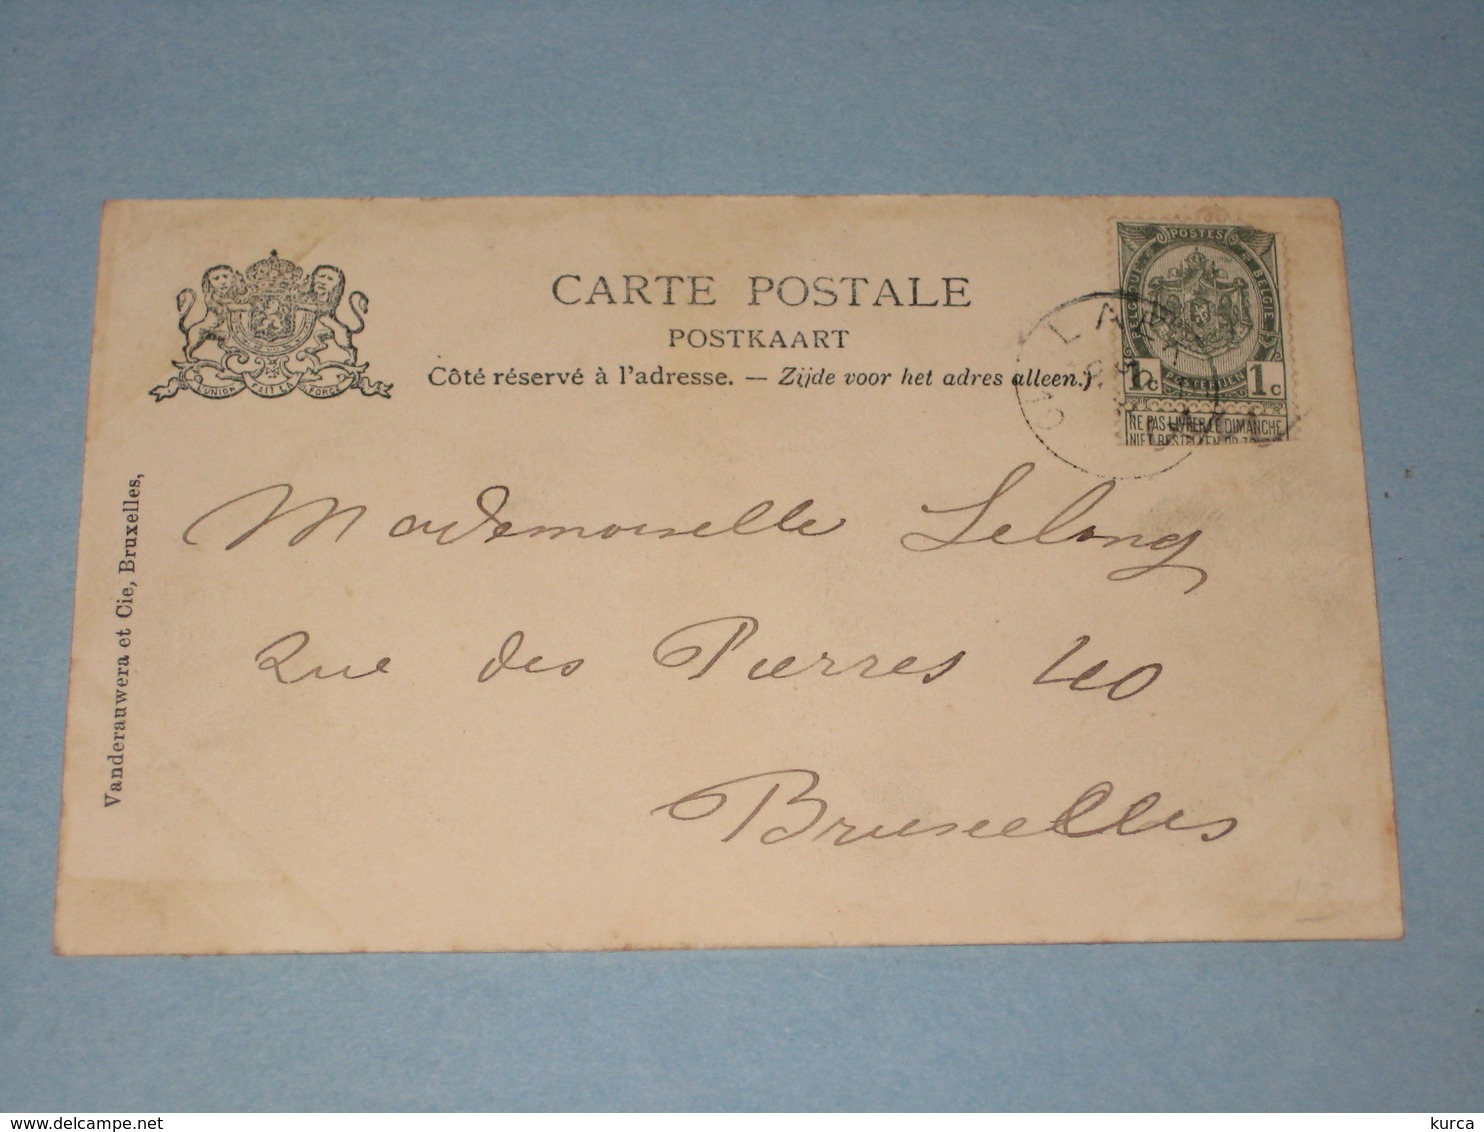 CARTE POSTALE
POSTKAART
Côté réservé à l'adresse. — Zijde voor het adres alleen.)
L'UNION FAIT LA FORCE
POSTES
BELGIQUE BELGIE
1c POSTERIJEN 1c
NE PAS LIVRER LE DIMANCHE
NIET BESTELLEN OP
LAEK
Mademoiselle Lelong
Rue des Pierres 40
Bruxelles
Vanderauwera et Cie, Bruxelles,
delcampe.net
kurca